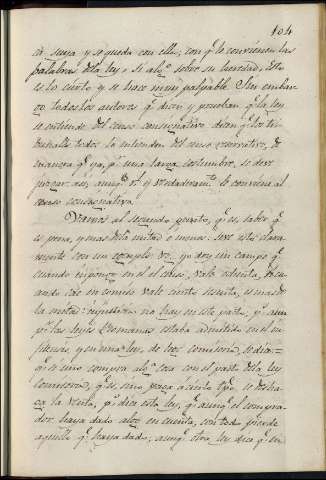 104
ca suya y se queda con ella; con q.e le convienen las
palabras dela ley, o si alg.o sobre su heredad, Esto
es lo cierto, y se hace muy palpable. Sin embar-
go, todos los autores q.e dicen y prueban q.e la ley
se entiende del censo consignativo dicen q.e los tri-
bunales todos la entienden del censo reservativo, de
manera q.e ya, p.r una larga costumbre, se debe
juzgar así, aunq.e y verdaderam.te le conviene al
censo consignativo.
Vamos al segundo punto, q.e es, saber q.e
es pena, y mas dela mitad o menos: sere esto clara-
mente con un exemplo. yo doy un campo q.e
cuando impongo en el el censo, vale ochenta,
cuando cae en comiso vale ciento sesenta, es mas de
la mitad injusticia no hay en esta parte, p.r
p.r las leyes Romanas estaba admitido en el en-
fiteusis, y en una ley, de leg. comisoria, se dice
q.e si uno compra alg.a cosa con el pacto dela ley
comisoria, q.e si uno paga a cierto tpo. se desha-
ga la venta, p.s dice esta ley, q.e aunq.e el compra-
dor haya dado algo en cuenta, con todo pierde
aquello q.e haya dado; aunq.e otra ley dice q.e en